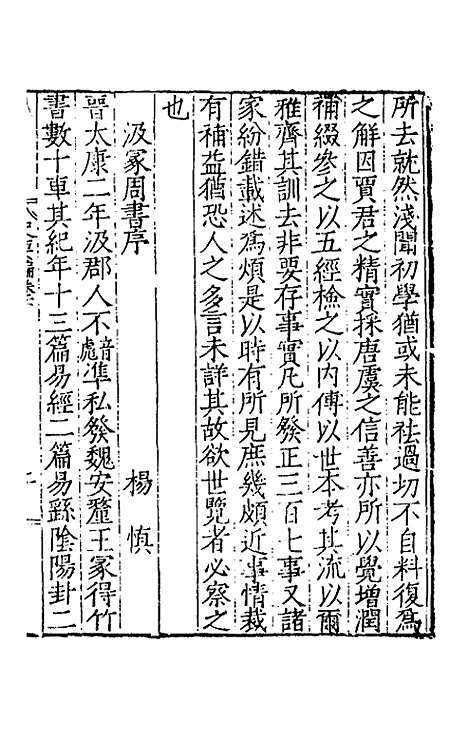 所去就然淺聞初學猶或未能祛過切不自料復爲
之解因賈君之精實採唐虞之信善亦所以覺增潤
補綴參之以五經檢之以內傳以世本考其流以爾
雅齊其訓去非要存事實凡所發正三百七事又諸
家紛錯載述爲煩是以時有所見庶幾頗近事情裁
有補益猶恐人之多言未詳其故欲世覽者必察之
也
汲冢周書序
楊慎
晉太康二年汲郡人不音彪準私發魏安釐王冢得竹
書數十車其紀年十三篇易經二篇易繇陰陽卦二